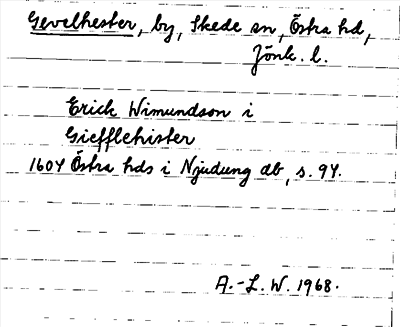 Gevelhester, by, Skede sn, Östra hd,
Jönk. l.
Erick Wimundson i
Giefflehister
1604 Östra hds i Njudung db, s. 94.
A.-L. W. 1968.